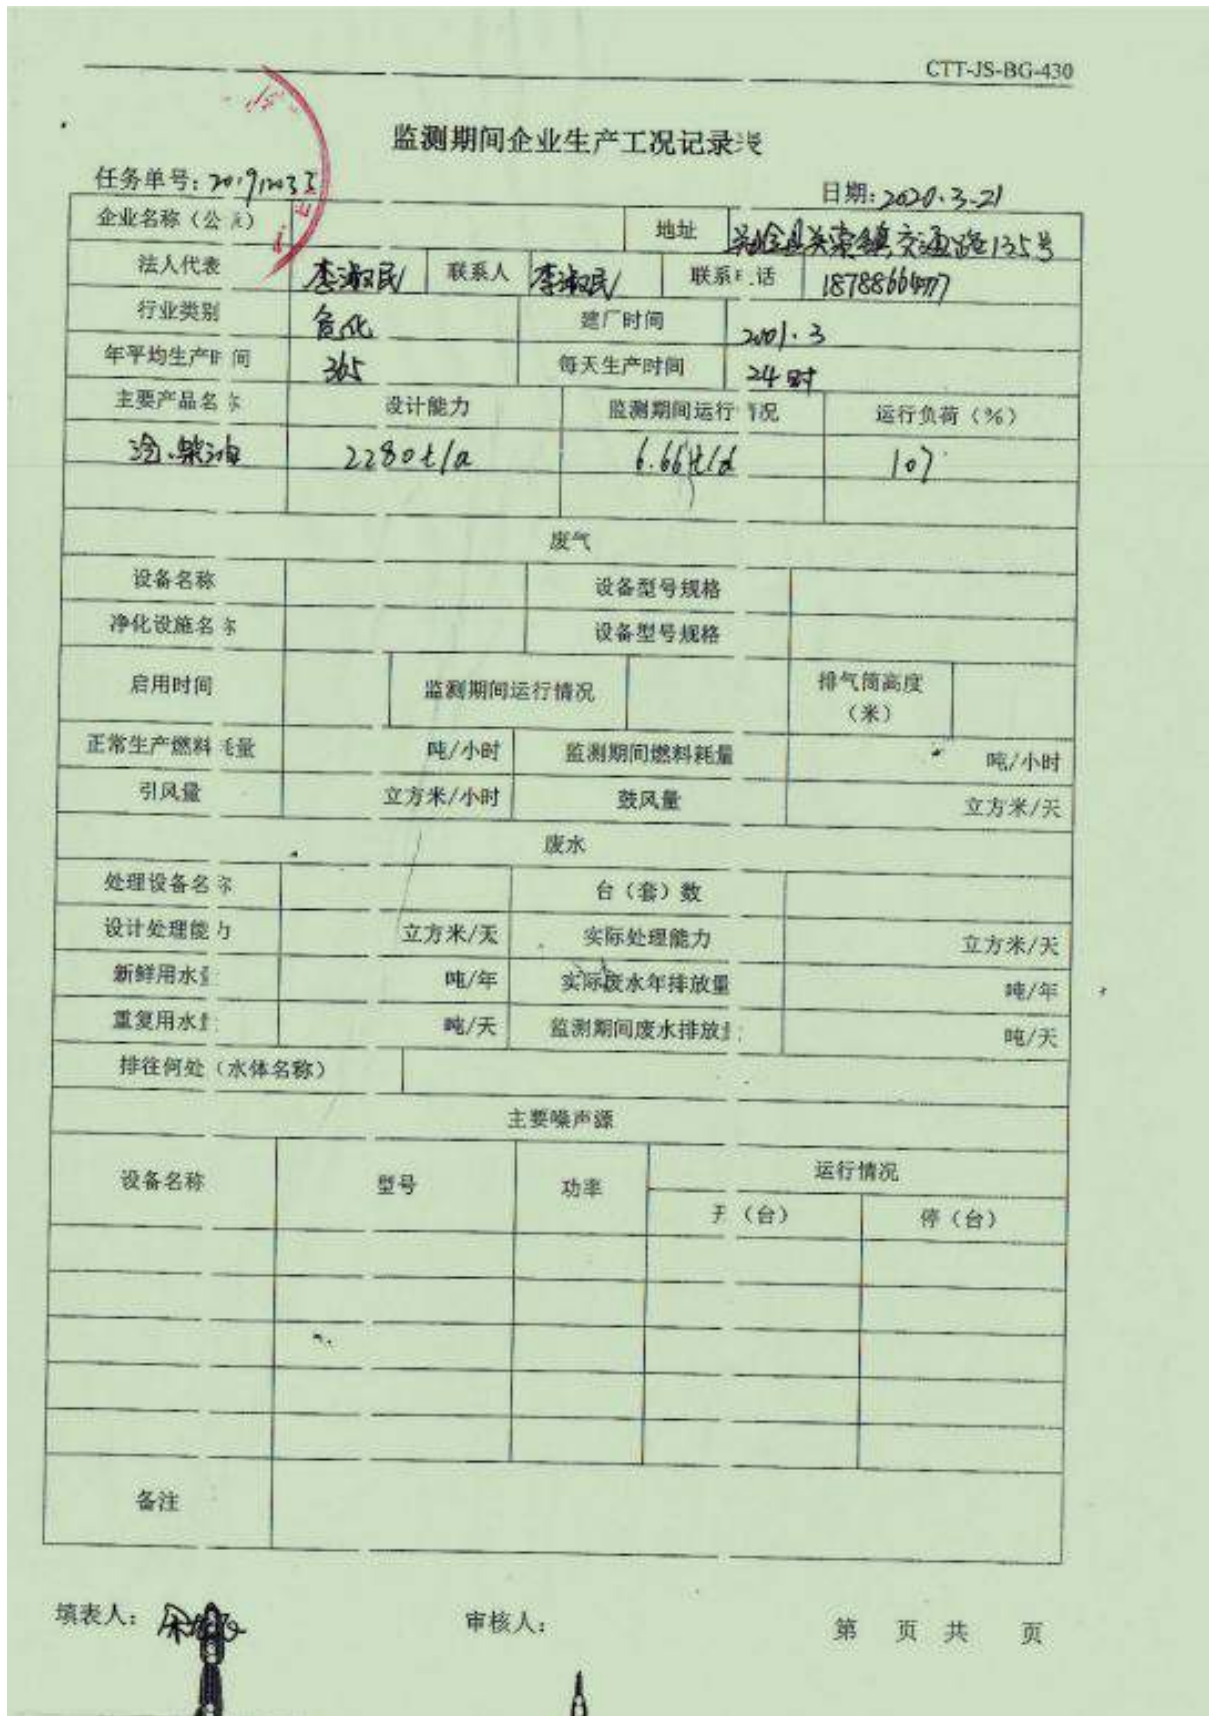 CTT-JS-BG-430
监测期间企业生产工况记录表
任务单号：201912035 日期：2020.3.21
企业名称（公章） 地址 交通路135号
法人代表 李淑民 联系人 李淑民 联系电话
行业类别 危化 建厂时间 2001.3
年平均生产时间 365 每天生产时间 24时
主要产品名称 设计能力 监测期间运行情况 运行负荷（%）
柴油 2280t/a 6.66t/d 107
废气
设备名称 设备型号规格
净化设施名称 设备型号规格
启用时间 监测期间运行情况 排气筒高度（米）
正常生产燃料耗量 吨/小时 监测期间燃料耗量 吨/小时
引风量 立方米/小时 鼓风量 立方米/天
废水
处理设备名称 台（套）数
设计处理能力 立方米/天 实际处理能力 立方米/天
新鲜用水量 吨/年 实际废水年排放量 吨/年
重复用水量 吨/天 监测期间废水排放量 吨/天
排往何处（水体名称）
主要噪声源
设备名称 型号 功率 运行情况
开（台） 停（台）
备注
填表人： 审核人： 第 页 共 页